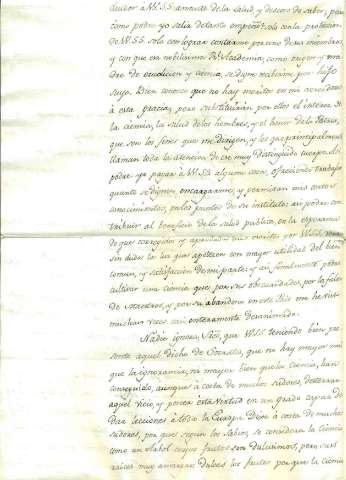 ducior à W.SS. amante de la salud, y deseoso de saber, pues
como podre yo salir de tanto empeño? solo con la proteccion
de W.SS. solo con lograr contarme por uno de sus miembros,
y con que esa nobilisima Rl. Academia, como origen y ma-
dre de erudicion y ciencia, se digne recibirme por hijo
suyo. Bien conosco que no hay meritos en mi acreedores
à esta gracia; pero substituirán por ellos el interes de
la ciencia, la salud de los hombres, y el honor de la Patria,
que son los fines que me dirigen, y los que principalmente
llaman toda la atencion de ese muy distinguido cuerpo. Asi
podre yo pagar à W.SS. algunos, ofreciendo trabajar
quanto se dignen encargarme, y permitan mis cortos
conocimientos, en los puntos de su instituto: asi podre con-
tribuir al beneficio de la salud publica, en la esperanza
de que corregidos y aprobados mis escritos por W.SS.
sin duda los que apetecen con mayor utilidad del bien
comun, y satisfaccion de mi parte; y asi finalmente podre
cultivar una ciencia que por sus obscuridades, por la falta
de y por su abandono en este Pais me he visto
muchas veces casi enteramente desanimado.
Nadie ignora, Sres., que W.SS. teniendo bien pre-
sente aquel dicho de Socrates, que no hay mayor mal
que la ignorancia, ni mayor bien que la ciencia, han
conseguido, aunque à costa de muchos sudores, desterrar
aquel vicio, y poseer esta virtud en un grado capaz de
dar lecciones à toda la Europa. Dixe à costa de muchos
sudores, por que segun los sabios, se considera la Ciencia
como un arbol cuyos frutos son dulcisimos, pero sus
raices muy amargas: dulces los frutos por que la ciencia